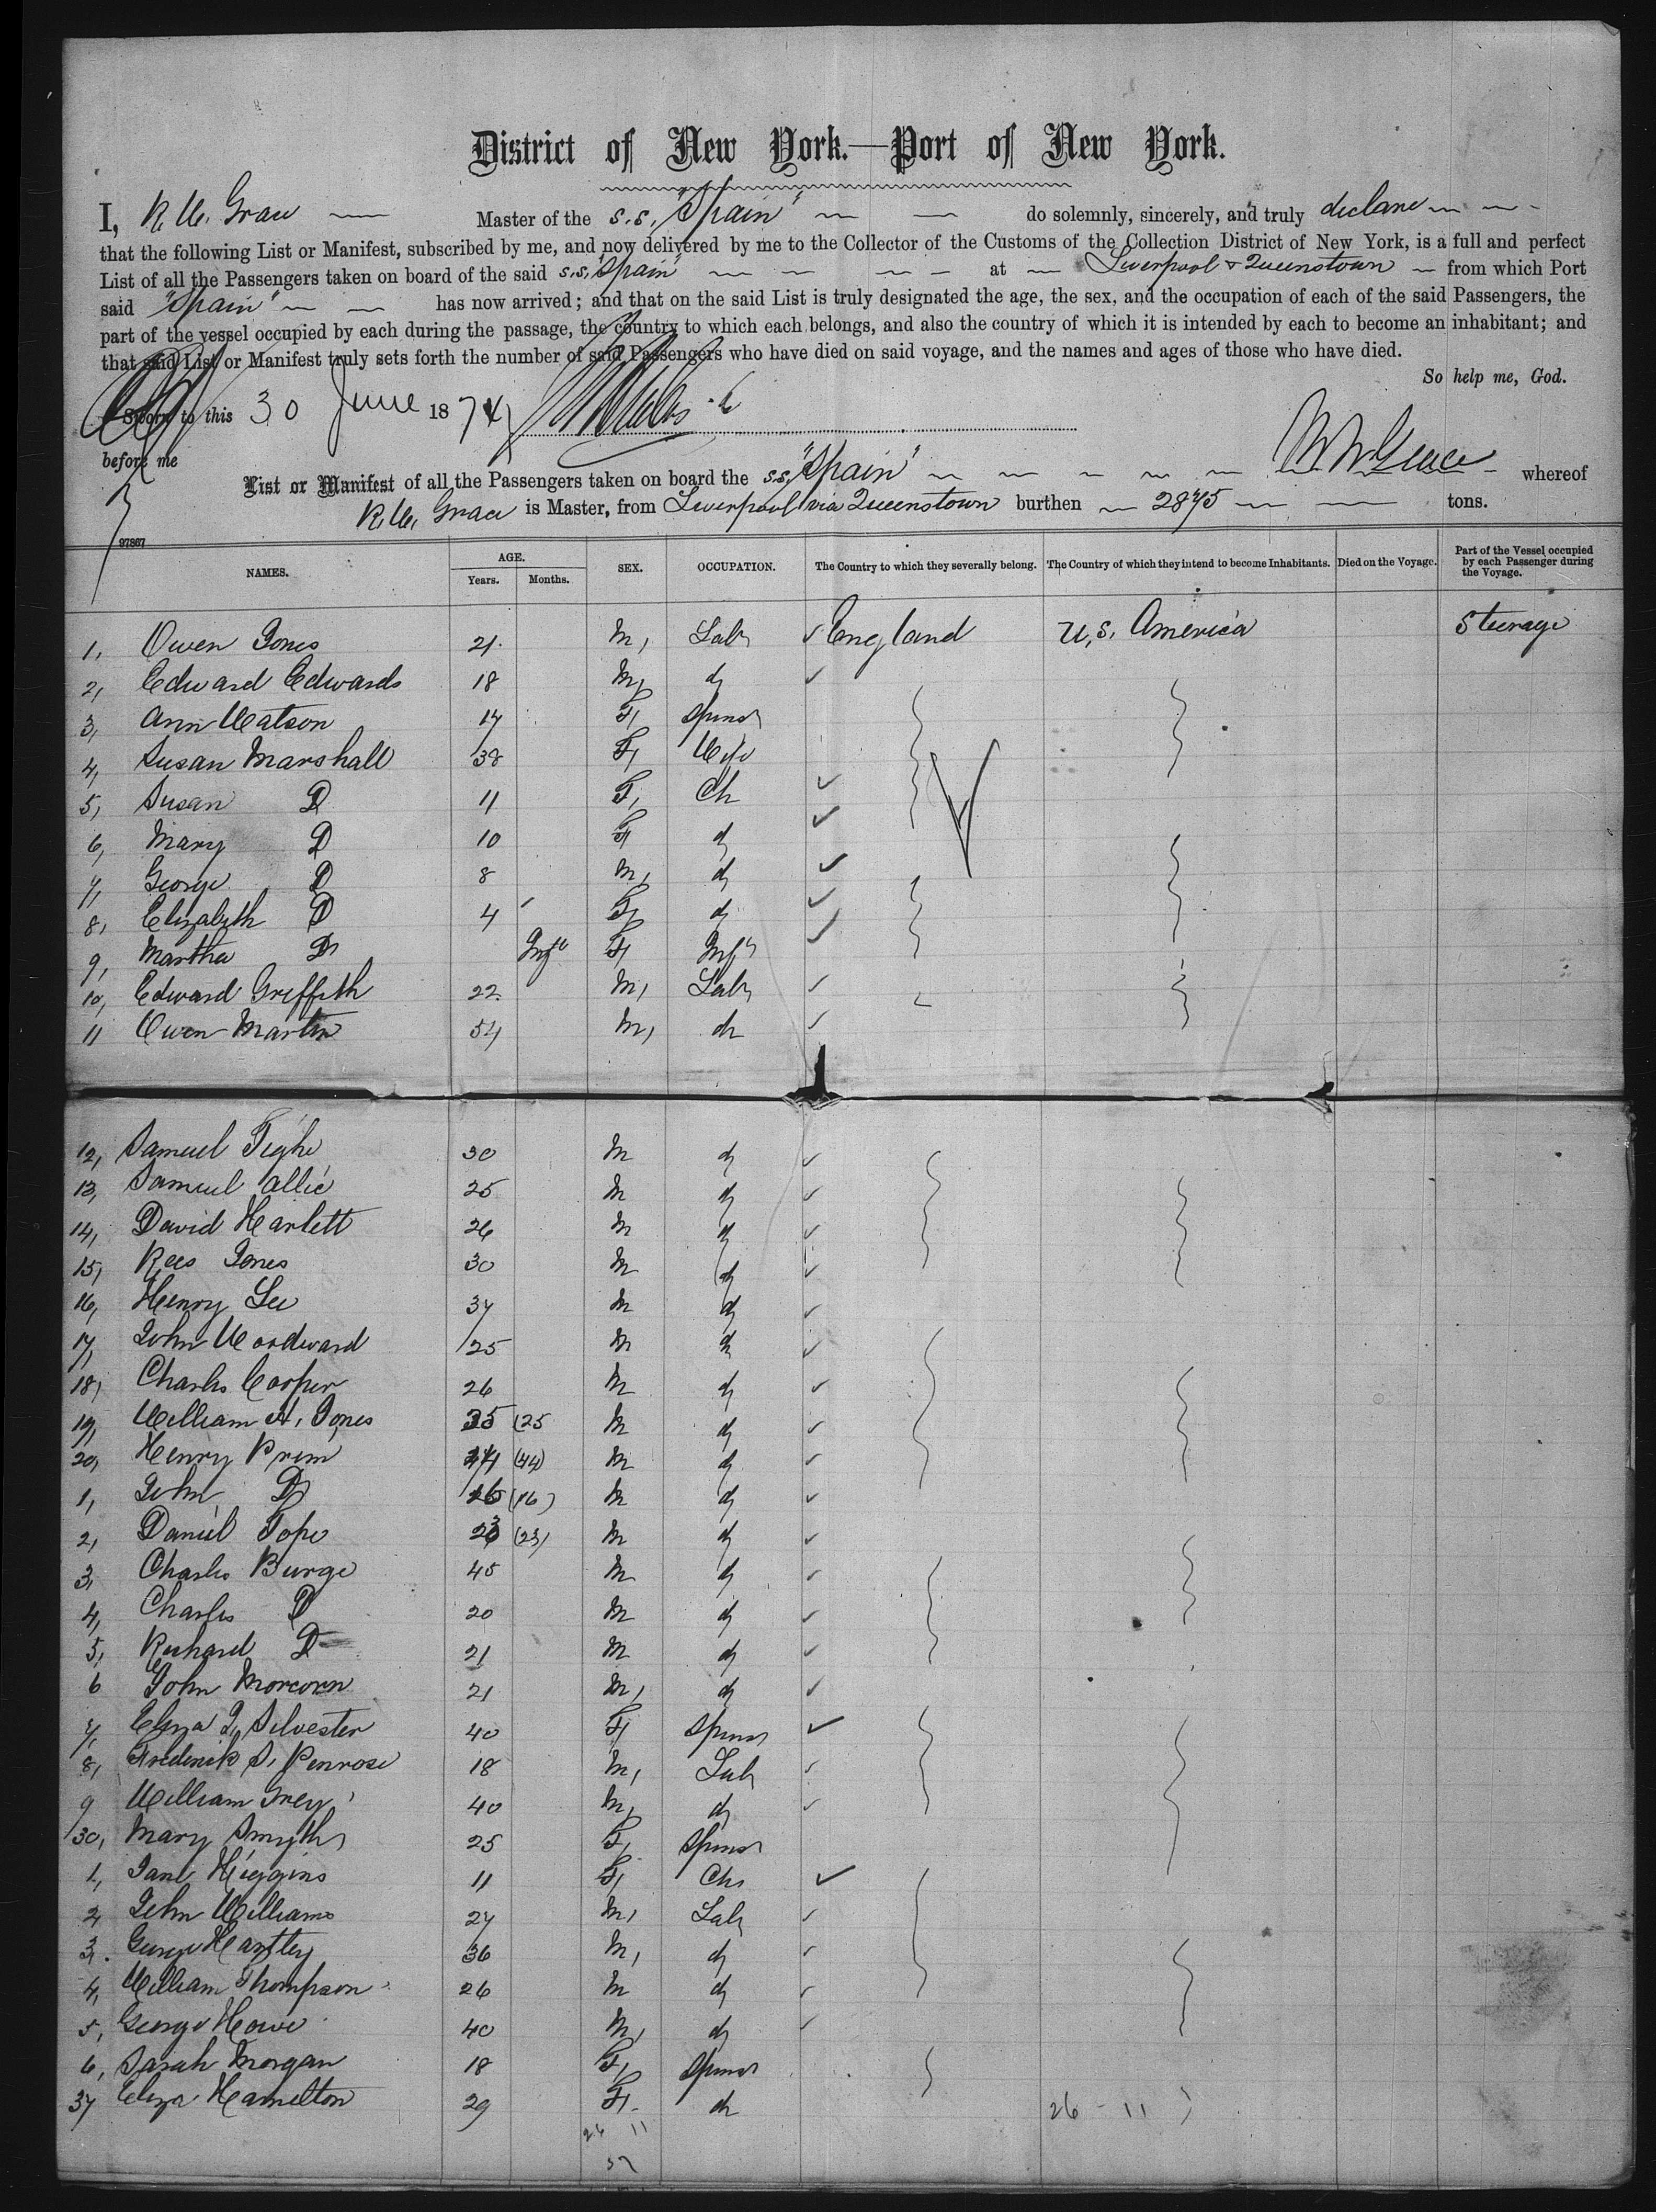 District of New York.—Port of New York.
I, R. W. Grace Master of the s.s. "Spain" do solemnly, sincerely, and truly declare
that the following List or Manifest, subscribed by me, and now delivered by me to the Collector of the Customs of the Collection District of New York, is a full and perfect
List of all the Passengers taken on board of the said s.s. "Spain" at Liverpool & Queenstown from which Port
said "Spain" has now arrived; and that on the said List is truly designated the age, the sex, and the occupation of each of the said Passengers, the
part of the vessel occupied by each during the passage, the country to which each belongs, and also the country of which it is intended by each to become an inhabitant; and
that said List or Manifest truly sets forth the number of said Passengers who have died on said voyage, and the names and ages of those who have died.
So help me, God.
Sworn to this 30 June 1874
before me
List or Manifest of all the Passengers taken on board the s.s. "Spain" whereof
R. W. Grace is Master, from Liverpool via Queenstown burthen 2875 tons.
97867
NAMES. AGE. Years. Months. SEX. OCCUPATION. The Country to which they severally belong. The Country of which they intend to become Inhabitants. Died on the Voyage. Part of the Vessel occupied by each Passenger during the Voyage.
1, Owen Jones 21 M, Labr England U.S. America Steerage
2, Edward Edwards 18 M, do
3, Ann Watson 17 F, Spinsr
4, Susan Marshall 38 F, Wife
5, Susan Do 11 F, Ch
6, Mary Do 10 F do
7, George Do 8 M, do
8, Elizabeth Do 4 F, do
9, Martha Do Inft F, Inft
10, Edward Griffith 22 M, Labr
11 Owen Martin 54 M, do
12, Samuel Tighe 30 M do
13, Samuel Allie 25 M do
14, David Harlett 26 M do
15, Rees Jones 30 M do
16, Henry Lee 37 M do
17, John Woodward 25 M do
18, Charles Cooper 26 M do
19, William H. Jones 35 (25 M do
20, Henry Prim (44) M do
1, John Do 26 (16) M do
2, Daniel Tope 23 (23) M do
3, Charles Burge 45 M do
4, Charles Do 20 M do
5, Richard Do 21 M do
6 John Morcorn 21 M, do
7, Eliza J. Silvester 40 F, Spinsr
8, Frederick S. Penrose 18 M, Labr
9 William Grey 40 M, do
30, Mary Smyth 25 F, Spinsr
1, Jane Higgins 11 F, Ch
2, John Williams 27 M, Labr
3. George Hartley 36 M, do
4, William Thompson 26 M do
5, George Howe 40 M, do
6, Sarah Morgan 18 F, Spinsr
37 Eliza Hamelton 29 F. do
26 - 11
26 11
37